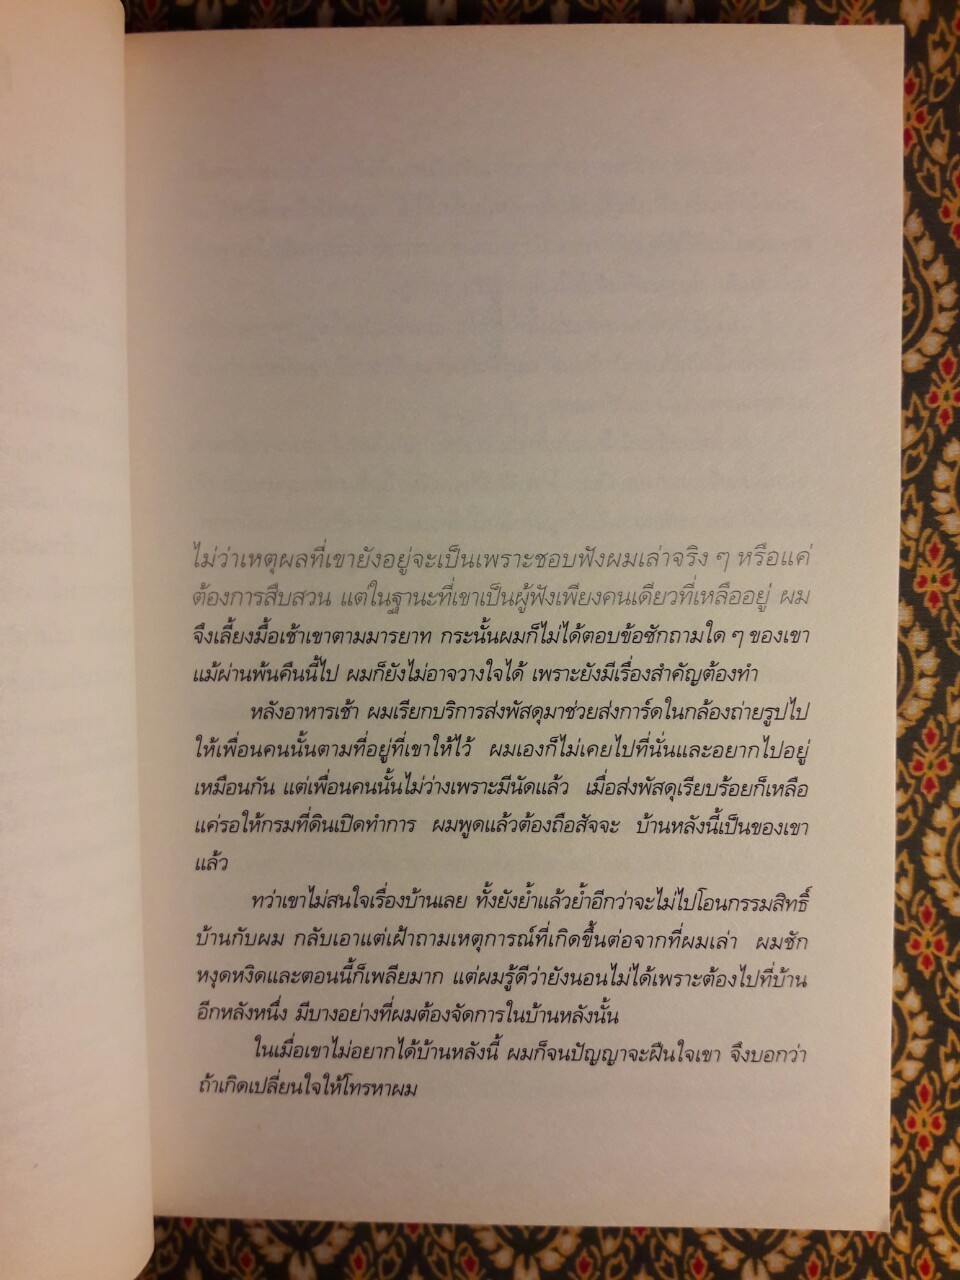 ไม่ว่าเหตุผลที่เขายังอยู่จะเป็นเพราะชอบฟังผมเล่าจริง ๆ หรือแค่
ต้องการสืบสวน แต่ในฐานะที่เขาเป็นผู้ฟังเพียงคนเดียวที่เหลืออยู่ ผม
จึงเลี้ยงมื้อเช้าเขาตามมารยาท กระนั้นผมก็ไม่ได้ตอบข้อซักถามใด ๆ ของเขา
แม้ผ่านพ้นคืนนี้ไป ผมก็ยังไม่อาจวางใจได้ เพราะยังมีเรื่องสำคัญต้องทำ
หลังอาหารเช้า ผมเรียกบริการส่งพัสดุมาช่วยส่งการ์ดในกล้องถ่ายรูปไป
ให้เพื่อนคนนั้นตามที่อยู่ที่เขาให้ไว้ ผมเองก็ไม่เคยไปที่นั่นและอยากไปอยู่
เหมือนกัน แต่เพื่อนคนนั้นไม่ว่างเพราะมีนัดแล้ว เมื่อส่งพัสดุเรียบร้อยก็เหลือ
แค่รอให้กรมที่ดินเปิดทำการ ผมพูดแล้วต้องถือสัจจะ บ้านหลังนี้เป็นของเขา
แล้ว
ทว่าเขาไม่สนใจเรื่องบ้านเลย ทั้งยังย้ำแล้วย้ำอีกว่าจะไม่ไปโอนกรรมสิทธิ์
บ้านกับผม กลับเอาแต่เฝ้าถามเหตุการณ์ที่เกิดขึ้นต่อจากที่ผมเล่า ผมชัก
หงุดหงิดและตอนนี้ก็เพลียมาก แต่ผมรู้ดีว่ายังนอนไม่ได้เพราะต้องไปที่บ้าน
อีกหลังหนึ่ง มีบางอย่างที่ผมต้องจัดการในบ้านหลังนั้น
ในเมื่อเขาไม่อยากได้บ้านหลังนี้ ผมก็จนปัญญาจะฝืนใจเขา จึงบอกว่า
ถ้าเกิดเปลี่ยนใจให้โทรหาผม